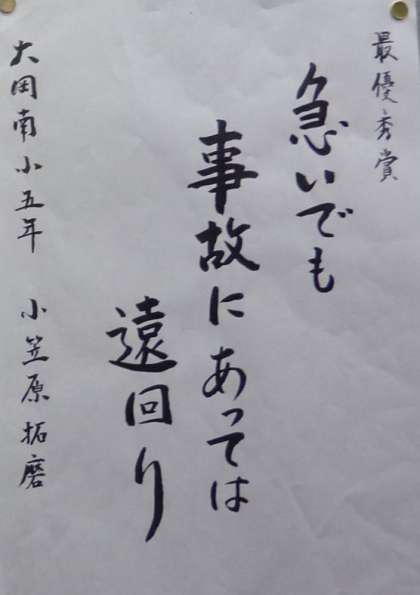 最優秀賞
急いでも
事故にあっては
遠回り
大岡南小五年 小笠原拓磨